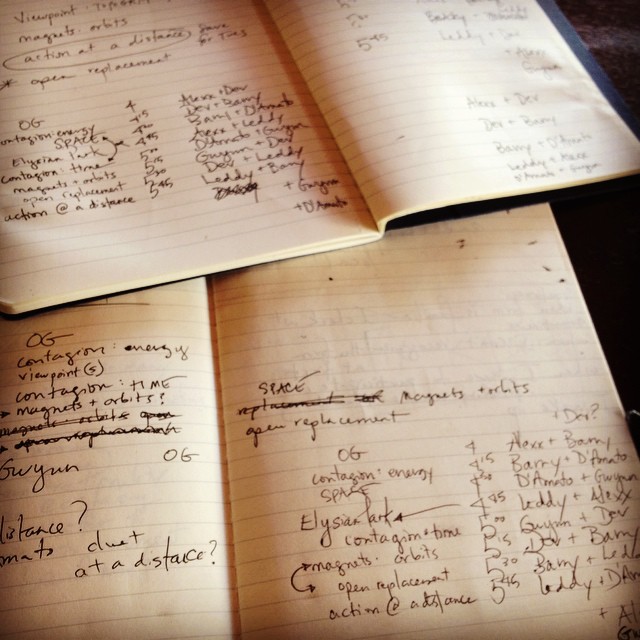 Viewpoint:
magnets: orbits
action at a distance Save for Tues
* open replacement
OG
contagion: energy
SPACE
Elysian Park
contagion: time
magnets + orbits
open replacement
action @ a distance
4
4 15
4 30
4 45
5 00
5 15
5 30
5 45
Alexx + Dev
Dev + Barry
Barry + D'Amato
Alexx + Leddy
D'Amato + Gwyun
Gwyun + Dev
Dev + Leddy
Leddy + Barry
+ Gwyun
+ D'Amato
5 30
5 45
Leddy + Dev
+ Alexx
Gwyun
Alexx + Dev
Dev + Barry
Barry + D'Amato
Leddy + Alexx
D'Amato + Gwyun
OG
contagion: energy
viewpoint(s)
contagion: TIME
magnets + orbits?
magnets orbits open
open replacement
Gwyun OG
distance?
duet
at a distance?
SPACE
replacement magnets + orbits
open replacement
+ Dev?
OG 4 Alexx + Barry
contagion: energy 4 15 Barry + D'Amato
SPACE 4 30 D'Amato + Gwyun
Elysian Park 4 45 Leddy + Alexx
contagion + time 5 00 Gwyun + Dev
magnets: orbits 5 15 Dev + Barry
open replacement 5 30 Barry + Leddy
action @ a distance 5 45 Leddy + D'Am